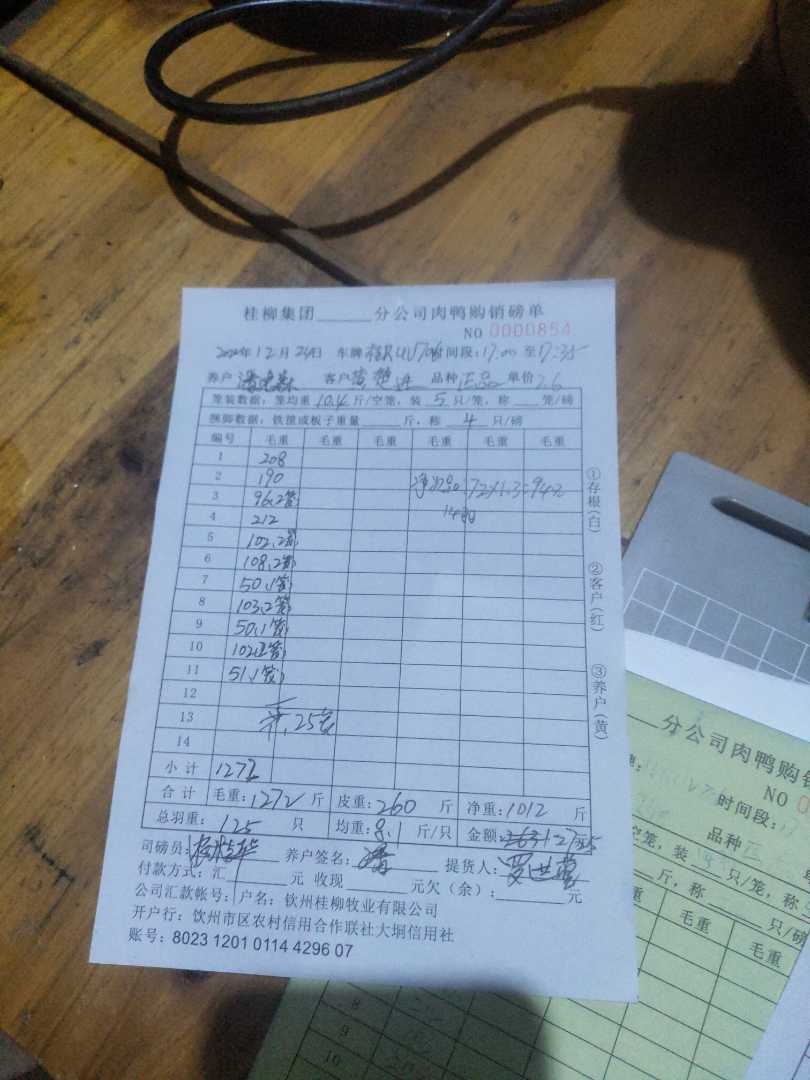 桂柳集团______分公司肉鸭购销磅单
NO 0000854
12月24日 车牌 时间段:17:00 至17:35
养户 客户 品种 正品 单价 2.6
笼装数据:笼均重10.4斤/空笼,装 5 只/笼,称____笼/磅
捆脚数据:铁渣或板子重量______斤,称 4 只/磅
编号 毛重 毛重 毛重 毛重 毛重 毛重
1 208
2 190 净次品:72×1.3=94元
3 96.2笼
4 212
5 102.2笼
6 108.2笼
7 50.1笼
8 103.2笼
9 50.1笼
10 102.2笼
11 51.1笼
12
13 25笼
14
小计 1272
合计 毛重:1272 斤 皮重:260 斤 净重:1012 斤
总羽重: 125 只 均重:8.1 斤/只 金额:
司磅员: 养户签名: 提货人:
付款方式:汇______元 收现______元欠(余):______元
公司汇款帐号: 户名:钦州桂柳牧业有限公司
开户行:钦州市区农村信用合作联社大垌信用社
账号:8023 1201 0114 4296 07
①存根(白)
②客户(红)
③养户(黄)
分公司肉鸭购
NO 0
时间段:17
品种
空笼,装 只/笼,
斤,称____只/磅
毛重 毛重
8
9
10